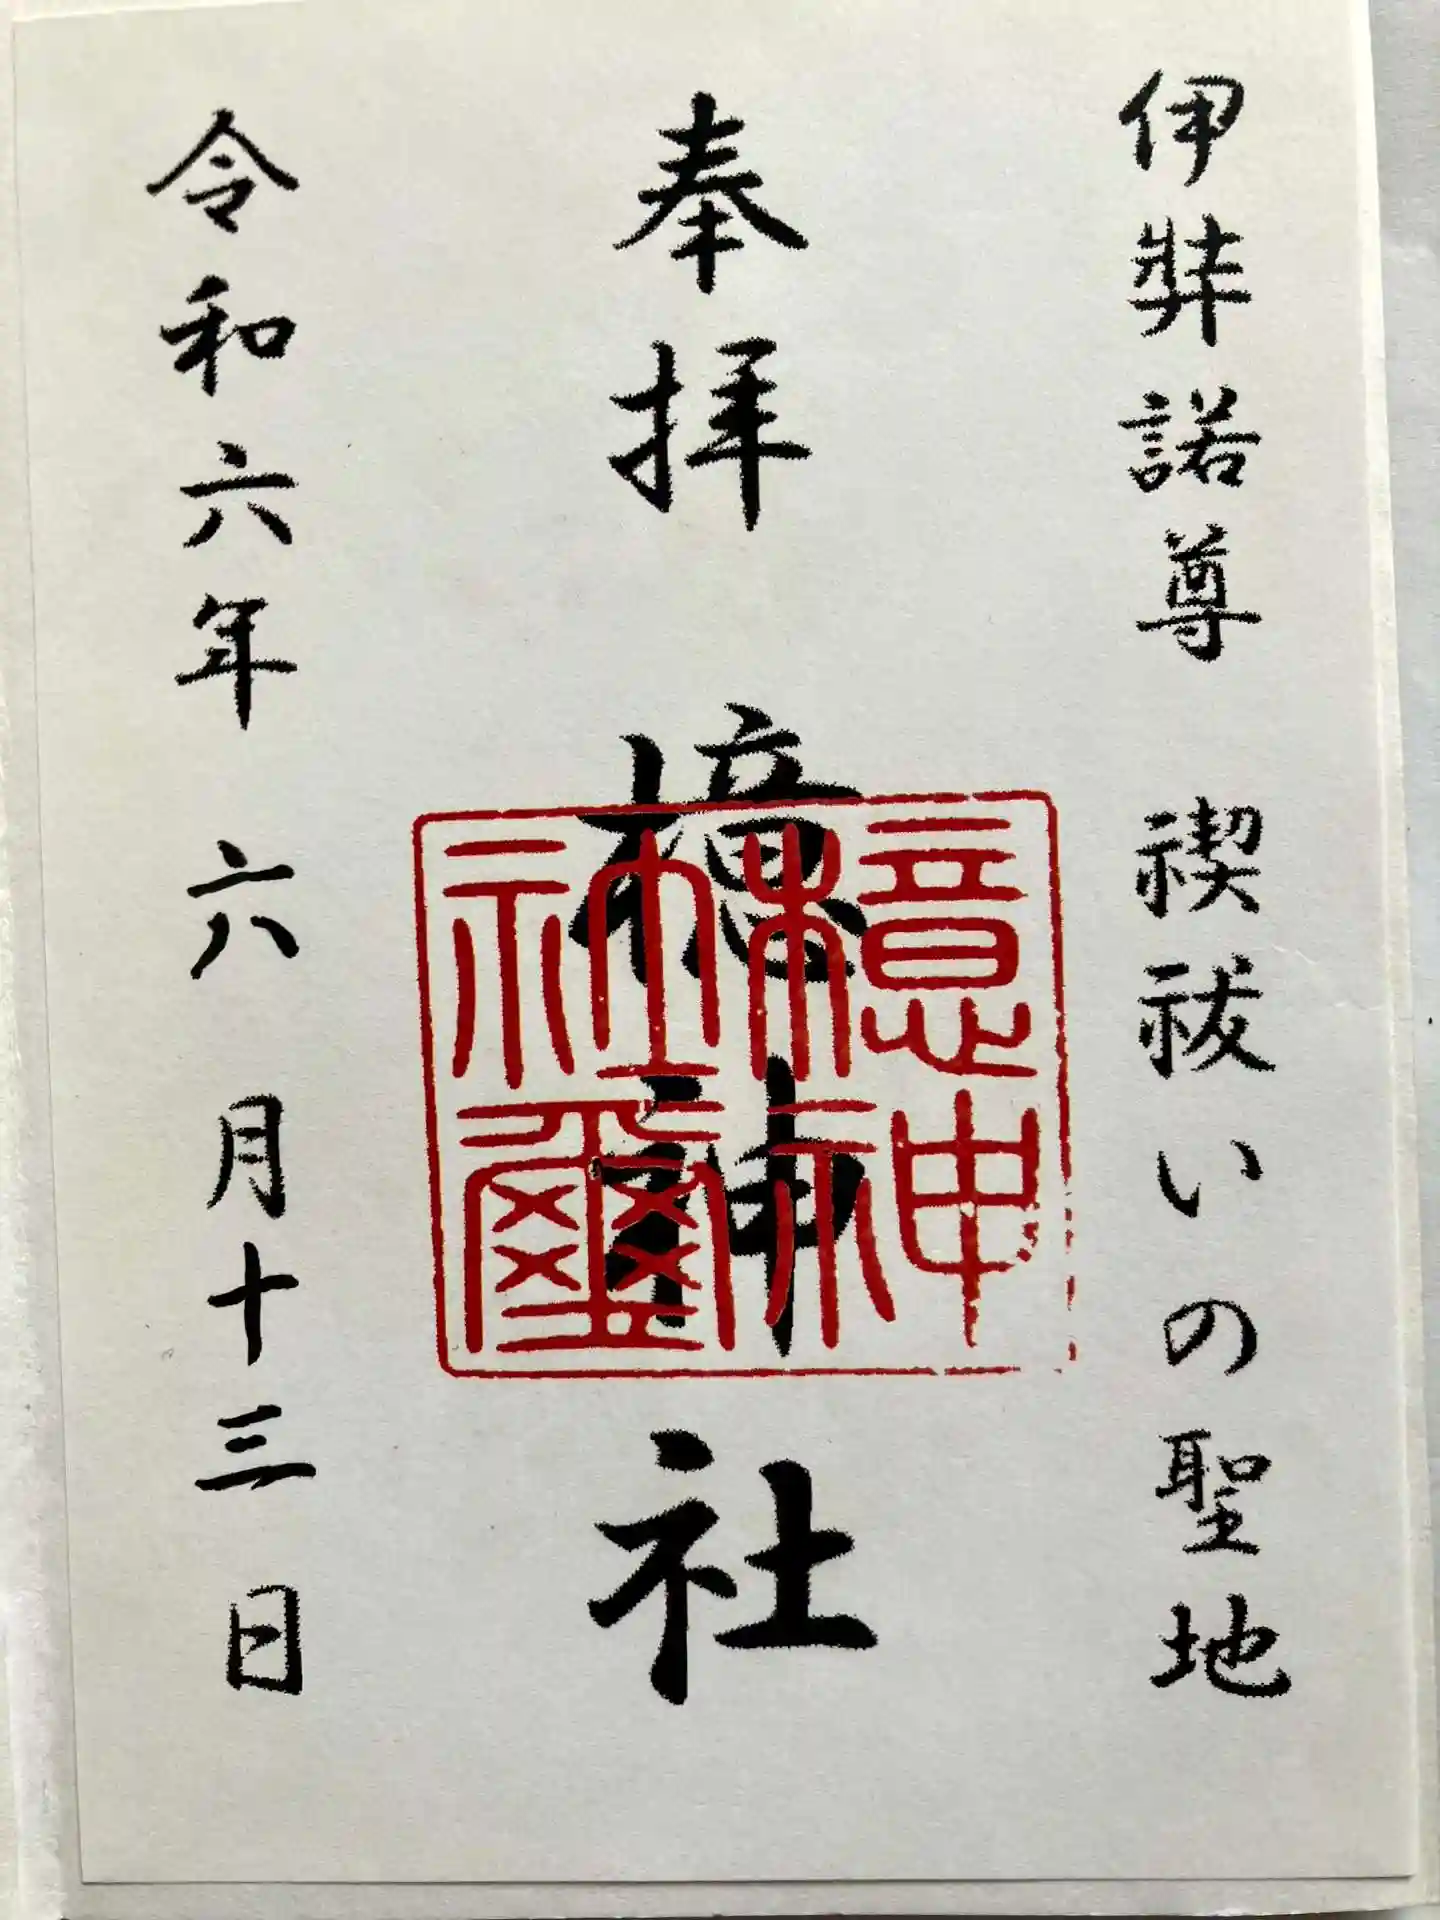 伊弉諾尊 禊祓いの聖地
奉拝 檍神社
檍神社璽
令和六年 六 月十三 日